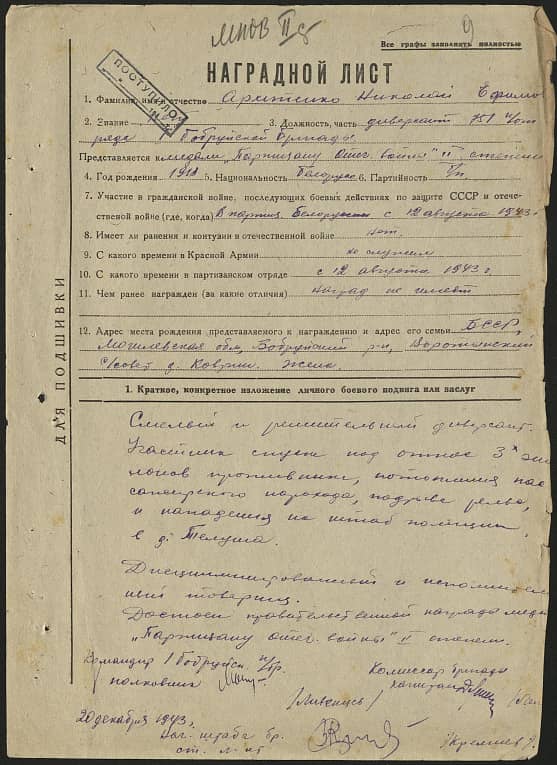 МПОВ II ст
9
Все графы заполнять полностью
ПОСТУПИЛО
НАГРАДНОЙ ЛИСТ
1. Фамилия, имя и отчество Николай Ефимов
2. Звание 3. Должность, часть диверсант 751 отп
ряда 1 Бобруйской бригады
Представляется к медали „Партизану Отеч. войны" II степени
4. Год рождения 5. Национальность белорус 6. Партийность б/п
7. Участие в гражданской войне, последующих боевых действиях по защите СССР и отече-
ственой войне (где, когда) В партиз. Белоруссии с 12 августа 1943 г
8. Имеет ли ранения и контузии в отечественной войне нет.
9. С какого времени в Красной Армии не служил
10. С какого времени в партизанском отряде с 12 августа 1943 г.
11. Чем ранее награжден (за какие отличия) наград не имеет
12. Адрес места рождения представляемого к награждению и адрес его семьи БССР,
Могилевская обл, Бобруйский р-н,
с/совет д. Жена
ДЛЯ ПОДШИВКИ
1. Краткое, конкретное изложение личного боевого подвига или заслуг
Смелый и решительный диверсант.
Участник спуска под откос 3х эше
лонов противника, потопления пас
сажирского парохода, подрыве рельс,
и нападения на штаб полиции
в д. Телуша.
Дисциплинированный и исполнитель
ный товарищ.
Достоен правительственной награды меда
„Партизану отеч. войны" II степени.
Командир 1 Бобруйск п/бр.
полковник
/Ливенцев/
Комиссар бригады
капитан
20 декабря 1943 г.
Нач. штаба бр.
ст. л-нт